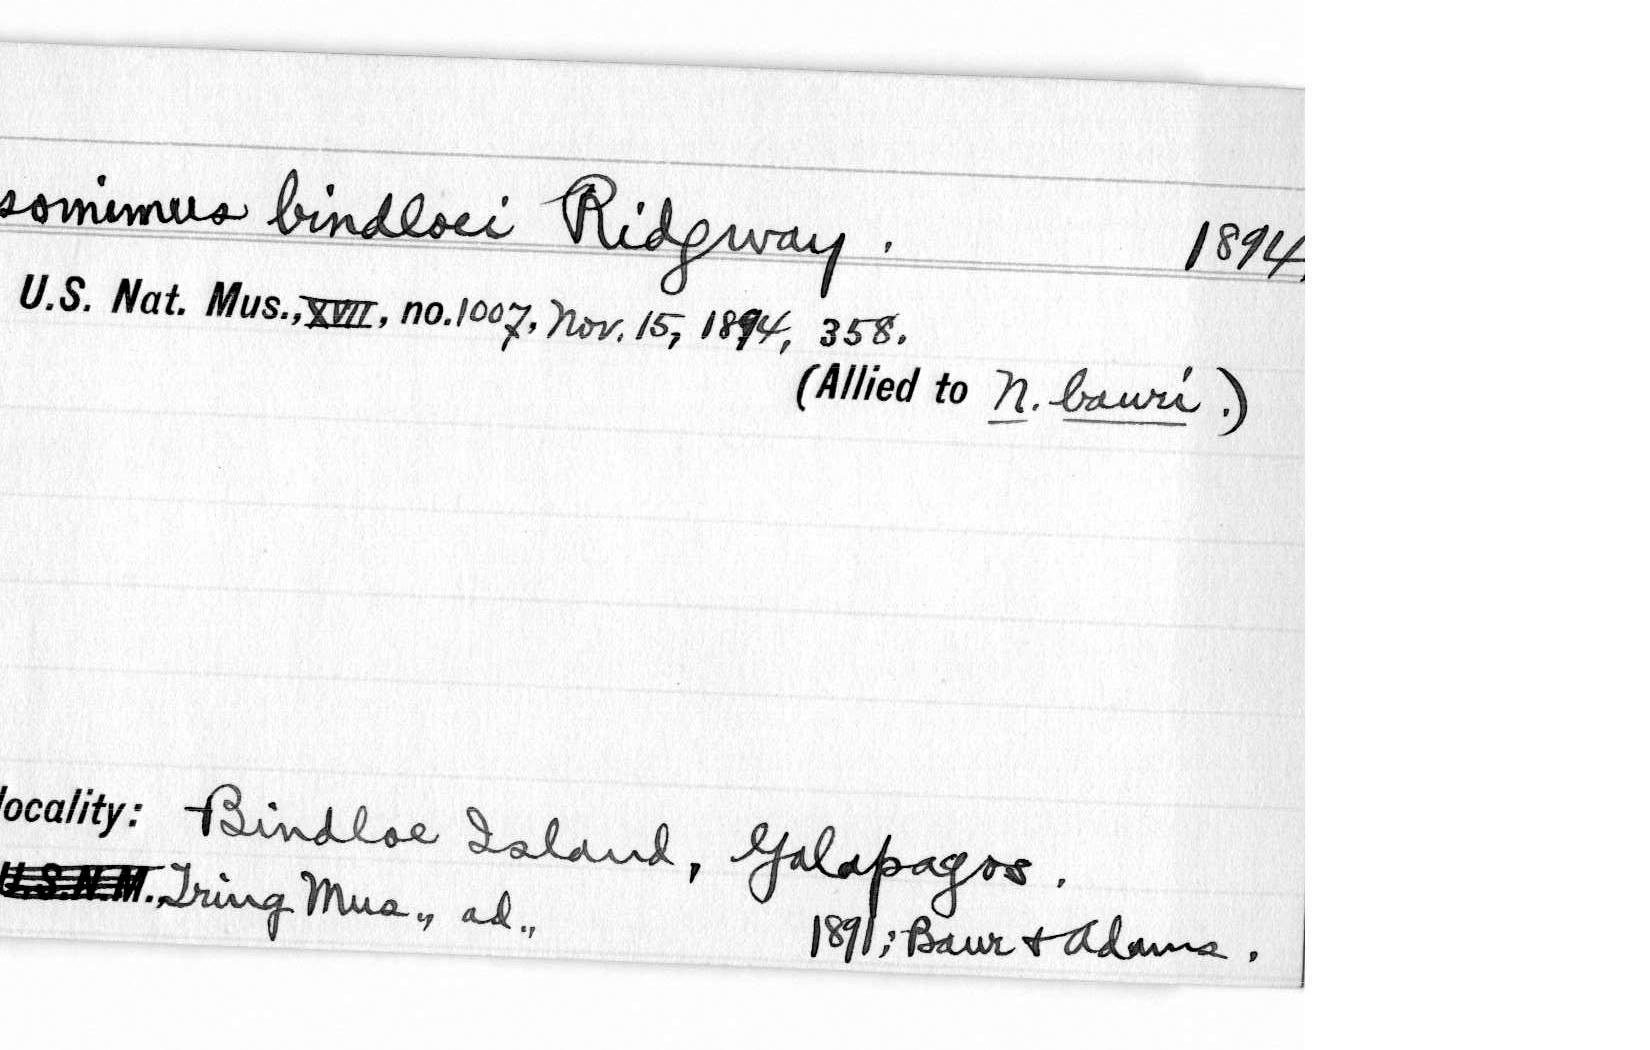 somimus bindloei Ridgway. 1894,
U.S. Nat. Mus., XVII, no. 1007, Nov. 15, 1894, 358.
(Allied to N. bauri.)
locality: Bindloe Island, Galapagos.
U.S.N.M., Tring Mus., ad.,
1891; Baur + Adams.